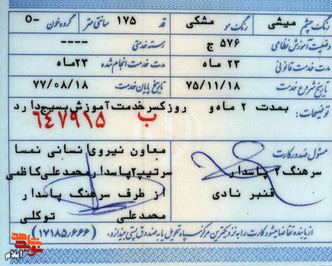 رنگ چشم میشی رنگ مو مشکی قد ۱۷۵ سانتی متر گروه خون O-
وضعیت آموزش نظامی ۵۷۶ ج رسته خدمتی ----
مدت خدمت قانونی ۲۳ ماه مدت خدمت انجام شده ۲۳ماه
تاریخ شروع خدمت ۷۵/۱۱/۱۸ تاریخ پایان خدمت ۷۷/۰۸/۱۸
توضیحات: بمدت ۲ ماه و روز کسر خدمت آموزش بسیج دارد
ب ۶۴۷۹۱۵
مسئول صدور کارت
سرهنگ۲ پاسدار
قنبر نادی
معاون نیروی انسانی نمسا
سرتیپ۲پاسدار محمدعلی کاظمی
از طرف سرهنگ پاسدار
محمدعلی توکلی
از یابنده تقاضا میشود کارت را به نزدیکترین مرکز سپاه تحویل یا به صندوق پستی بیندازد. (۱۷۱۸۵/۶۶۶)
ایلام